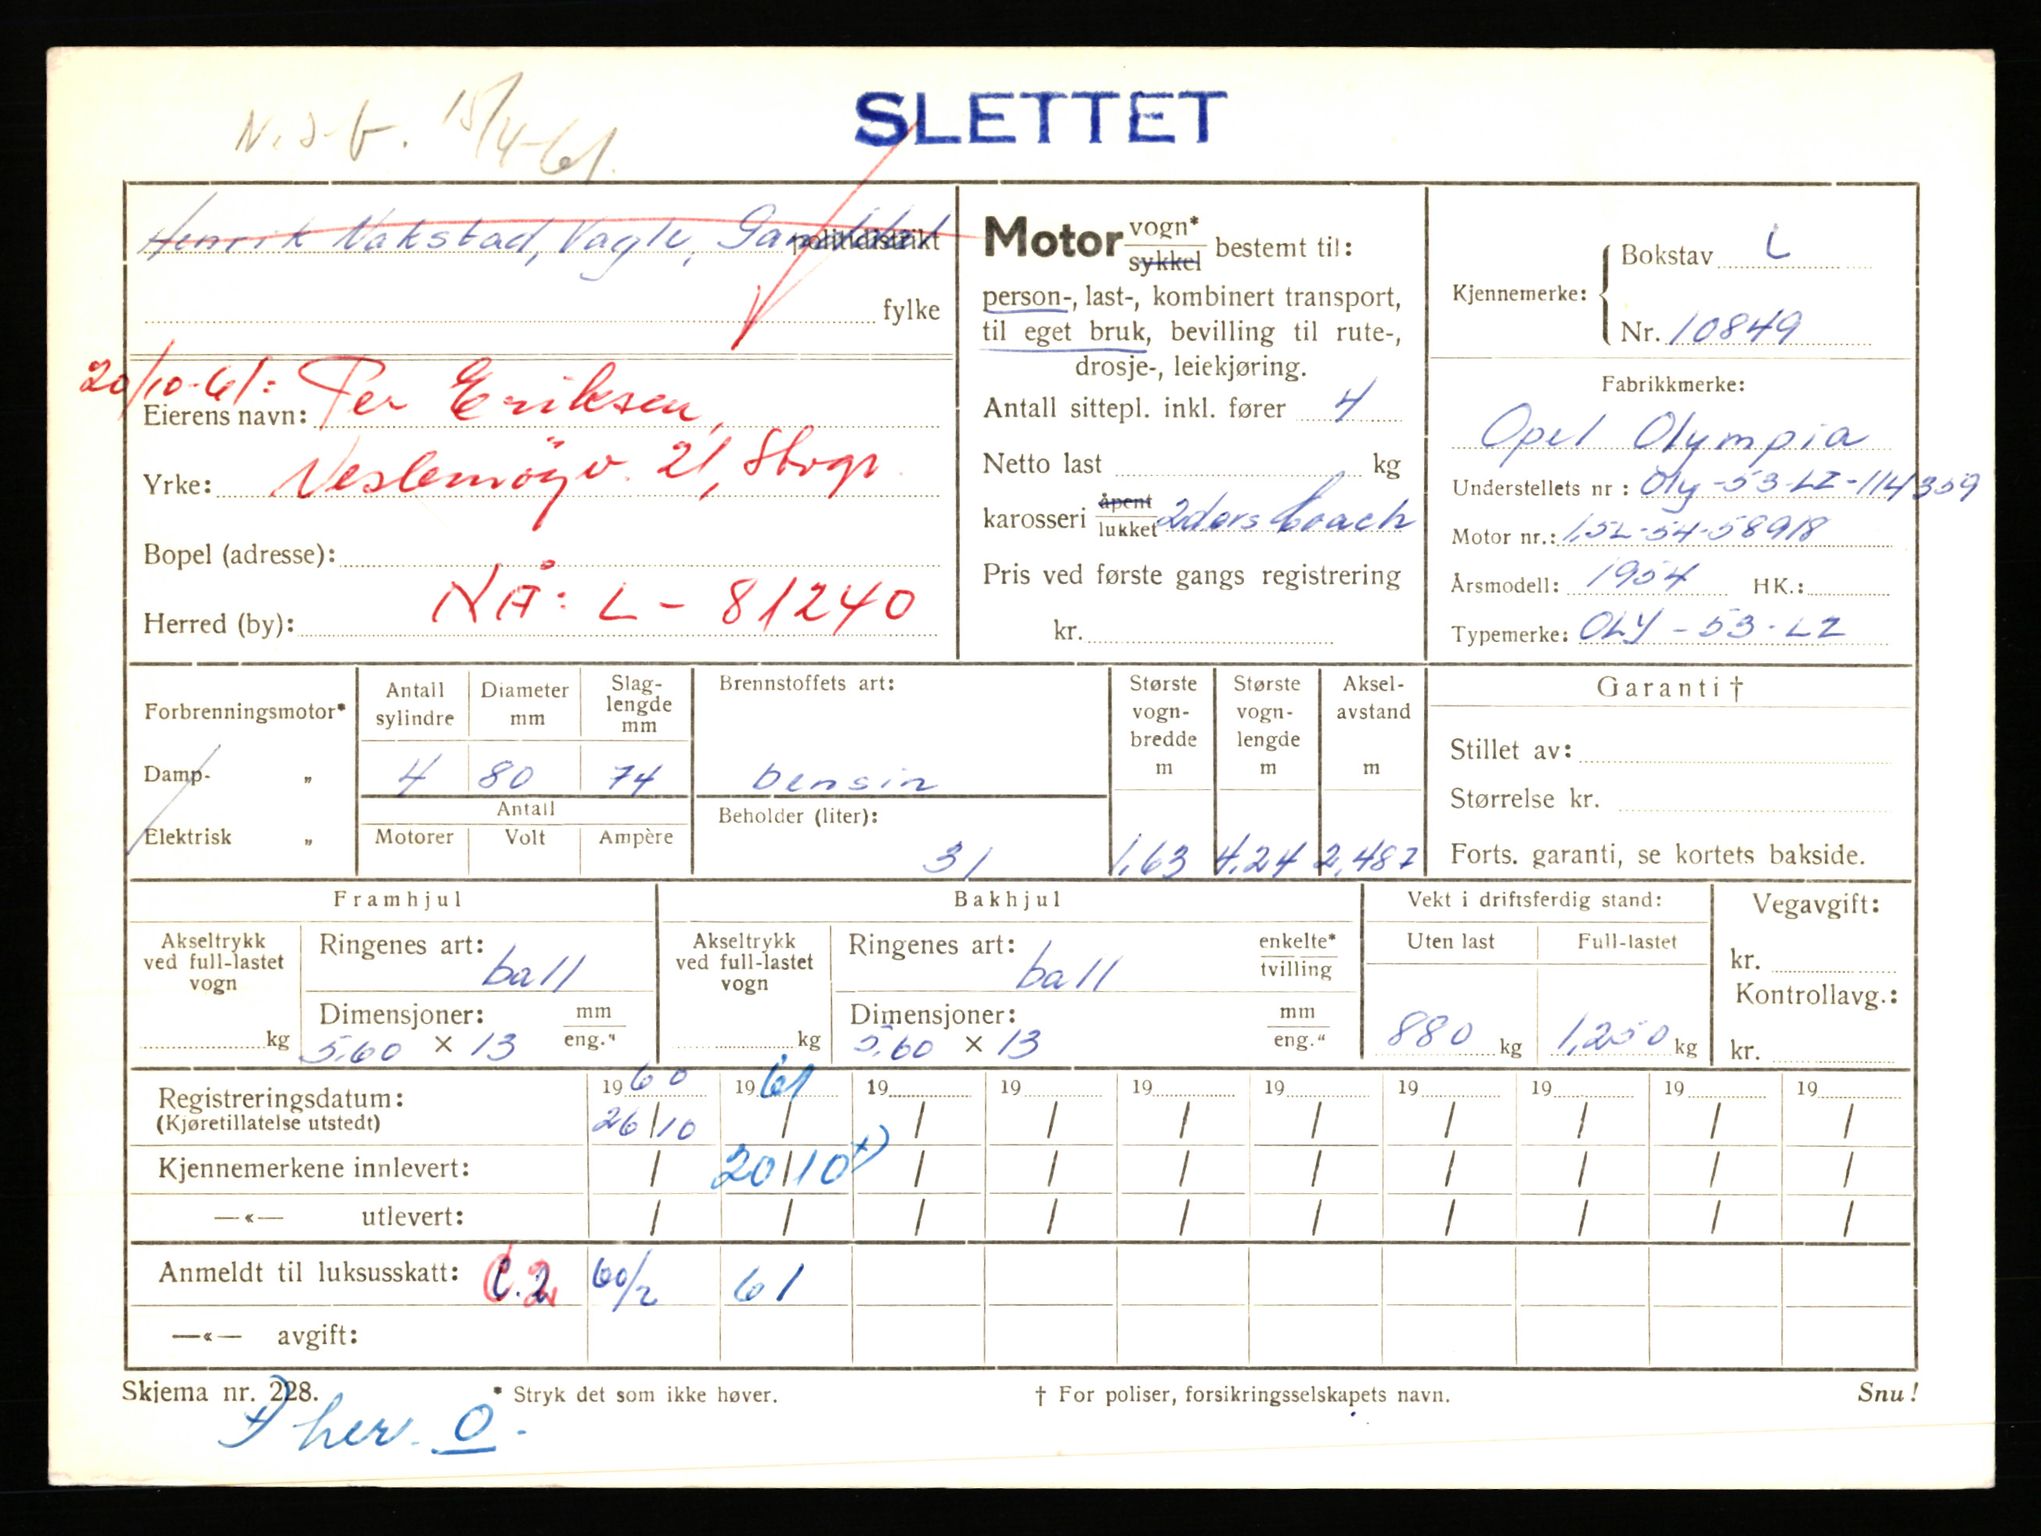 SLETTET
15/4-61.
Henrik Nakstad, Vagle, politidistrikt
fylke
20/10-61: Per Eriksen,
Eierens navn:
Yrke: Veslemøyv. 21, Stvgr.
Bopel (adresse):
NÅ: L - 81240
Herred (by):
Motor vogn* sykkel bestemt til:
person-, last-, kombinert transport,
til eget bruk, bevilling til rute-,
drosje-, leiekjøring.
Antall sittepl. inkl. fører 4
Netto last kg
karosseri åpent lukket 2dørs Coach
Pris ved første gangs registrering
kr.
Kjennemerke:
Bokstav L
Nr. 10849
Fabrikkmerke:
Opel Olympia
Understellets nr : Oly-53-LZ-114359
Motor nr.: 1,5L-54-58918
Årsmodell: 1954 HK.:
Typemerke: OLY-53-LZ
Forbrenningsmotor*
Damp- „
Elektrisk „
Antall sylindre
Diameter mm
Slag- lengde mm
4 80 74
Antall
Motorer Volt Ampère
Brennstoffets art:
bensin
Beholder (liter):
31
Største vogn- bredde m
1,63
Største vogn- lengde m
4,24
Aksel- avstand m
2,487
Garanti †
Stillet av:
Størrelse kr.
Forts. garanti, se kortets bakside.
Framhjul
Akseltrykk ved full-lastet vogn
kg
Ringenes art:
ball
Dimensjoner: mm eng."
5.60 × 13
Bakhjul
Akseltrykk ved full-lastet vogn
kg
Ringenes art: enkelte* tvilling
ball
Dimensjoner: mm eng."
5.60 × 13
Vekt i driftsferdig stand:
Uten last Full-lastet
880 kg 1,250 kg
Vegavgift:
kr.
Kontrollavg.:
kr.
1960 1961 19 19 19 19 19 19 19 19
Registreringsdatum:
(Kjøretillatelse utstedt) 26/10 / / / / / / / / /
Kjennemerkene innlevert: / 20/10 x) / / / / / / / /
—«— utlevert: / / / / / / / / / /
Anmeldt til luksusskatt: C.2 60/2 61
—«— avgift:
Skjema nr. 228. * Stryk det som ikke høver. † For poliser, forsikringsselskapets navn. Snu!
x) her. O.